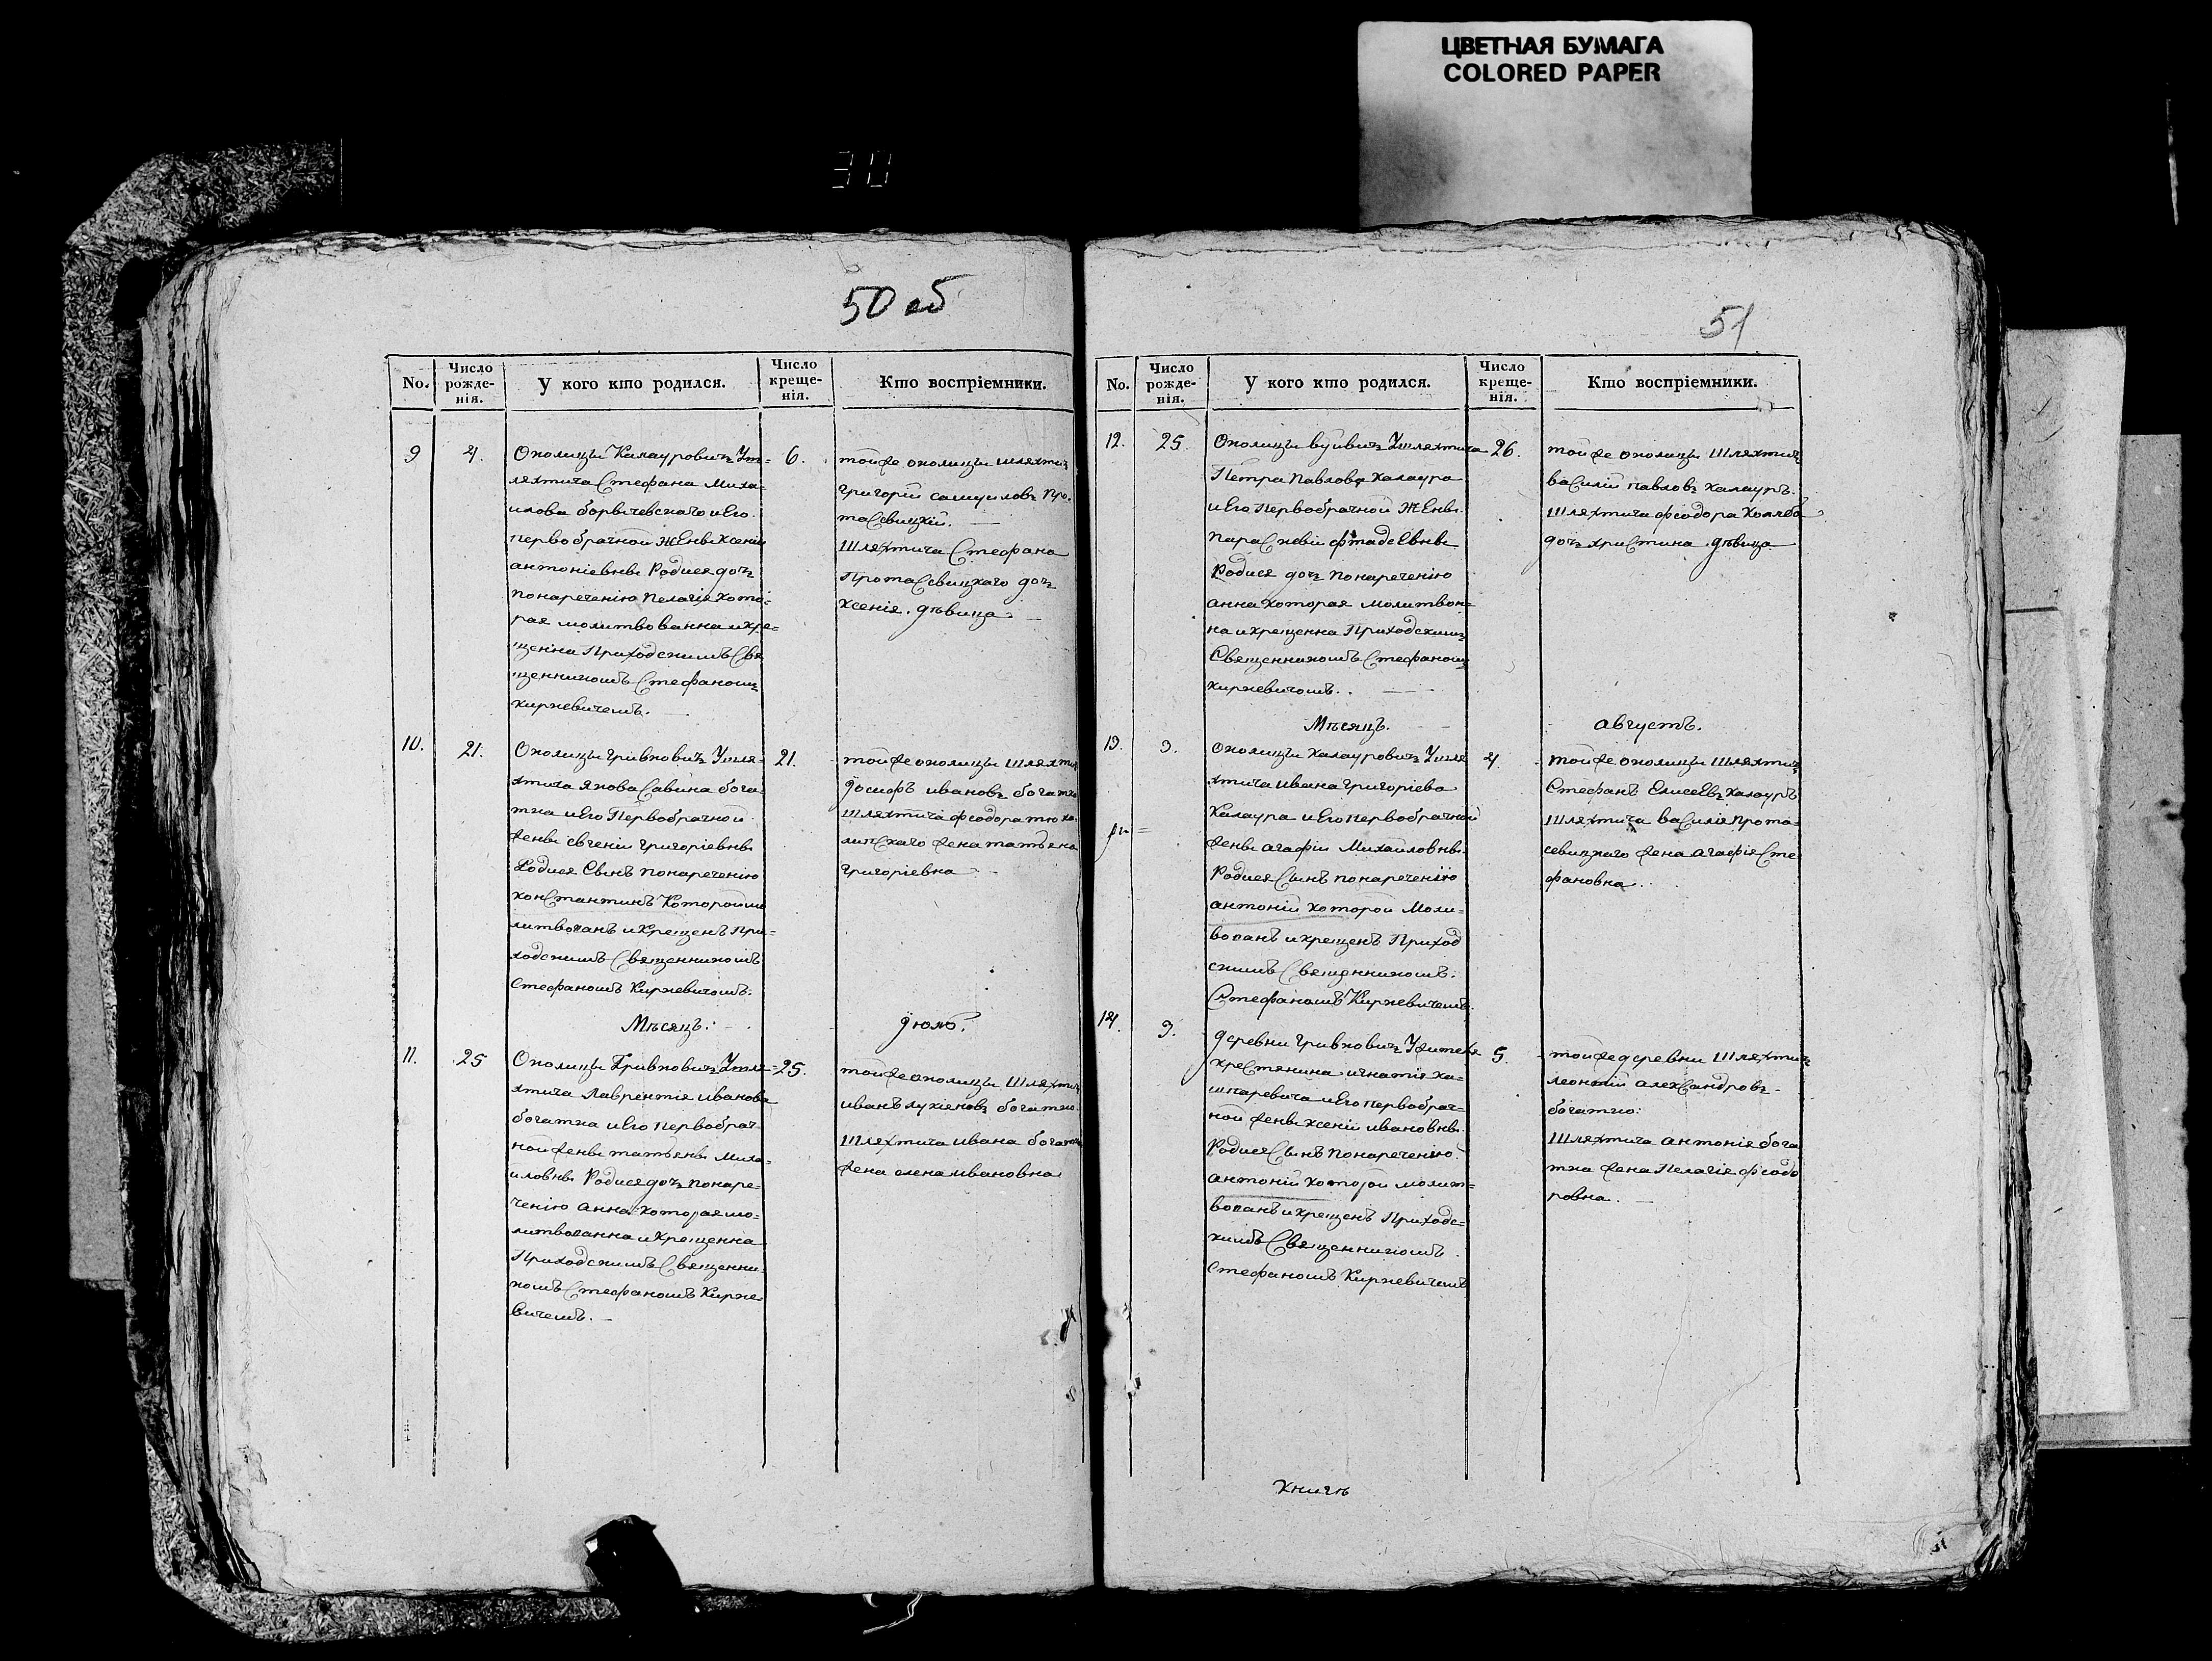 ЦВЕТНАЯ БУМАГА
COLORED PAPER
30
50 об
No.
Число рожде-нія.
У кого кто родился.
Число креще-нія.
Кто воспріемники.
9
4.
Околицы Калауровичъ Уш=
ляхтича Стефана Миха=
илова борвичевскаго и Его
первобрачной жены Ксеніи
антоніевны Родися дочъ
понареченію Пелагія кото=
рая молитвованна и кре=
щенна Приходскимъ Свя
щенникомъ Стефаномъ
киркевичемъ.
6.
той же околицы шляхтичъ
Григорій самуиловъ Про=
тасевицкій.
Шляхтича Стефана
Протасевицкаго дочъ
Ксенія. дѣвица
10.
21.
Околицы Гривковичъ Ушля=
хтича Якова Савина бога=
тка и Его Первобрачной
жены евгеніи григоріевны
Родися Сынъ понареченію
константинъ Которой мо
литвованъ и Крещенъ При=
ходскимъ Священникомъ
Стефаномъ Киркевичомъ.
21.
той же околицы шляхтичъ
Іосифъ ивановъ богатко
шляхтича феодора
жена татьяна
григоріевна
Мѣсяцъ.
Іюль.
11.
25
Околицы Гривковичъ Ушля=
хтича Лаврентія иванова
богатка и Его первобрач=
ной жены татьяны Миха=
иловны Родися дочъ понаре=
ченію анна которая мо=
литвованна и Крещенна
Приходскимъ Священни=
комъ Стефаномъ Кирке=
вичемъ.
25.
той же околицы Шляхтичъ
иванъ лукіяновъ богатко.
Шляхтича ивана богатка
жена елена ивановна
51
No.
Число рожде-нія.
У кого кто родился.
Число креще-нія.
Кто воспріемники.
12.
25
Околицы вуйвичъ Ушляхтича
Петра Павлова калаура
и Его Первобрачной Жены
Параскевіи фтадеЕвны
Родися дочъ понареченію
анна которая молитвон=
на и крещенна Приходскимъ
Священникомъ Стефаномъ
киркевичомъ.
26.
той же околицы Шляхтичъ
василій павловъ калауръ.
Шляхтича феодора
дочъ христина дѣвица
Мѣсяцъ.
августъ.
13.
3.
Околицы калауровичъ Ушля
хтича ивана григоріева
Калаура и Его первобрачной
жены агафіи Михайловны
Родися Сынъ понареченію
антоній которой Моли=
вованъ и крещенъ Приход
скимъ Священникомъ.
Стефаномъ Киркевичемъ.
4.
той же околицы шляхтичъ
Стефанъ ЕлисеЕвъ Калауръ
Шляхтича василія прота=
севицкаго жена агафія Сте
фановна.
14.
3.
деревни Гривковичъ Ужителя
крестянина игнатія ка=
шпаревича и Его первобрач=
ной жены ксеніи ивановны
Родися Сынъ Понареченію
антоній которой молит=
вованъ и крещенъ Приходс=
кимъ Священникомъ
Стефаномъ Киркевичемъ
5.
той же деревни Шляхтичъ
леонтій александровъ
богатко:
Шляхтича антонія бога
тка жена Пелагія феодо
ровна.
книгѣ